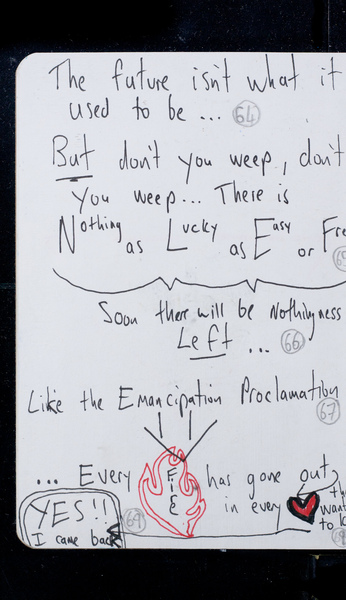 The future isn't what it
used to be ... 64
But don't you weep, don't
you weep... There is
Nothing as Lucky as Easy or Fre
Soon ther will be Nothingness
Left ... 66
Like the Emancipation Proclamation
67
... Every Fire has gone out,
in every
want
to
YES!! 69
I came back